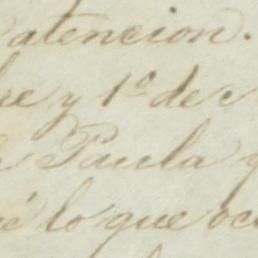 atencion.
y 1º de
Paula y
lo que